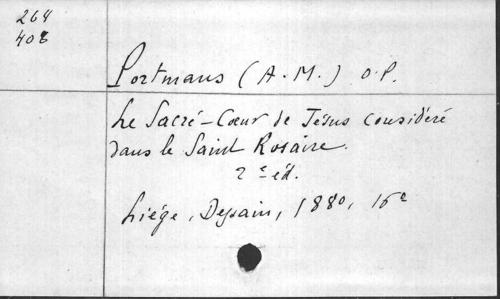 264
408
Portmans (A.M.) O.P.
Le Sacré-Cœur de Jésus considéré
dans le Saint Rosaire.
2e éd.
Liége, Dessain, 1880, 16e